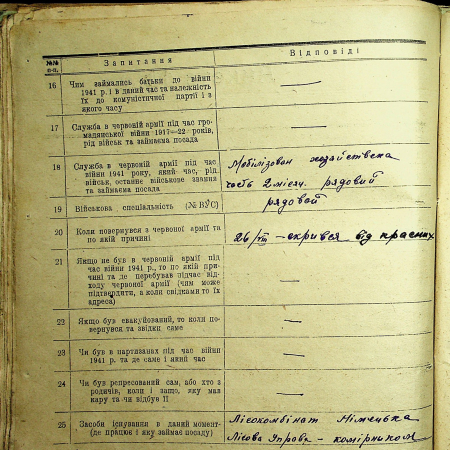 №№ п-п.	Запитання	Відповіді
16 Чим займались батьки до війни
1941 р. і в даний час та належність
їх до комуністичної партії і з
якого часу —
17 Служба в червоній армії під час гро-
мадянської війни 1917—22 років,
рід військ та займаєма посада —
18 Служба в червоній армії під час
війни 1941 року, який час, рід
військ, останнє військове звання
та займаєма посада
Мобілізован хозяйствена
часть 2 місяц. рядовий
19 Військова спеціальність (№ ВУС) рядовой
20 Коли повернувся з червоної армії та
по якій причині
26/III — скрився від красних
21 Якщо не був в червоній армії під
час війни 1941 р., то по якій при-
чині та де перебував підчас від-
ходу червоної армії (чим може
підтвердити, а коли свідками то їх
адреса) —
22 Якщо був евакуйований, то коли по-
вернувся та звідки саме —
23 Чи був в партизанах під час війни
1941 р. та де саме і який час —
24 Чи був репресований сам, або хто з
родичів, коли і защо, яку мав
кару та чи відбув її —
25 Засоби існування в даний момент-
(де працює і яку займає посаду)
Лісокомбінат Німецька
Лісова Управа — комірником